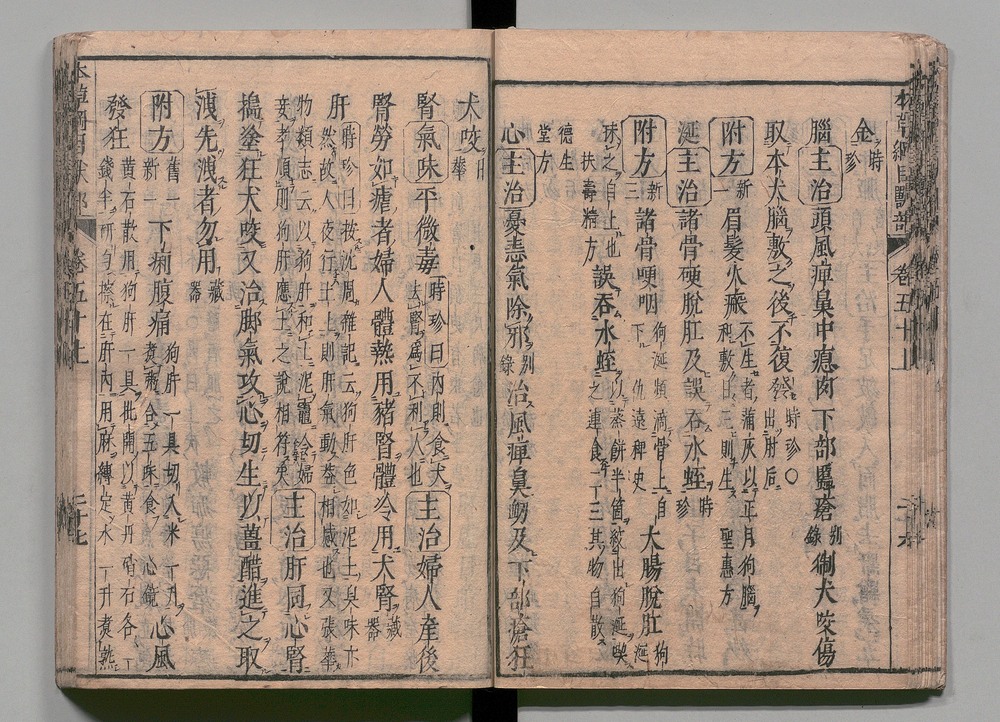 本草綱目獸部 卷五十上
金時珍
腦主治頭風痺鼻中瘜肉下部䘌瘡別錄猘犬咬傷
取本犬腦敷之後不復發時珍○出肘后
附方新一眉髮火瘢不生者蒲灰以正月狗腦和敷日三則生聖惠方
涎主治諸骨硬脫肛及誤吞水蛭時珍
附方新三諸骨哽咽狗涎頻滴骨上自下仇遠稗史大腸脫肛狗涎
抹之自上也扶壽精方誤吞水蛭以蒸餅半箇絞出狗涎喫之連食二三其物自散
德生堂方
心主治憂恚氣除邪別錄治風痺鼻衄及下部瘡狂
犬咬日華
腎氣味平微毒時珍曰內則食犬去腎爲不利人也主治婦人產後
腎勞如瘧者婦人體熱用豬腎體冷用犬腎藏器
肝時珍曰按沈周雜記云狗肝色如泥土臭味亦然故人夜行土上則肝氣動蓋相感也又張華
物類志云以狗肝和土泥竈令婦妾孝順則狗肝應土之說相符矣主治肝同心腎
搗塗狂犬咬又治脚氣攻心切生以薑醋進之取
洩先洩者勿用藏器
附方舊一新一下痢腹痛狗肝一具切入米一升煮粥合五味食心鏡心風
發狂黃石散用狗肝一具批開以黃丹硝石各一錢半研勻擦在肝內用麻縛定水一升煮熟
卷五十上